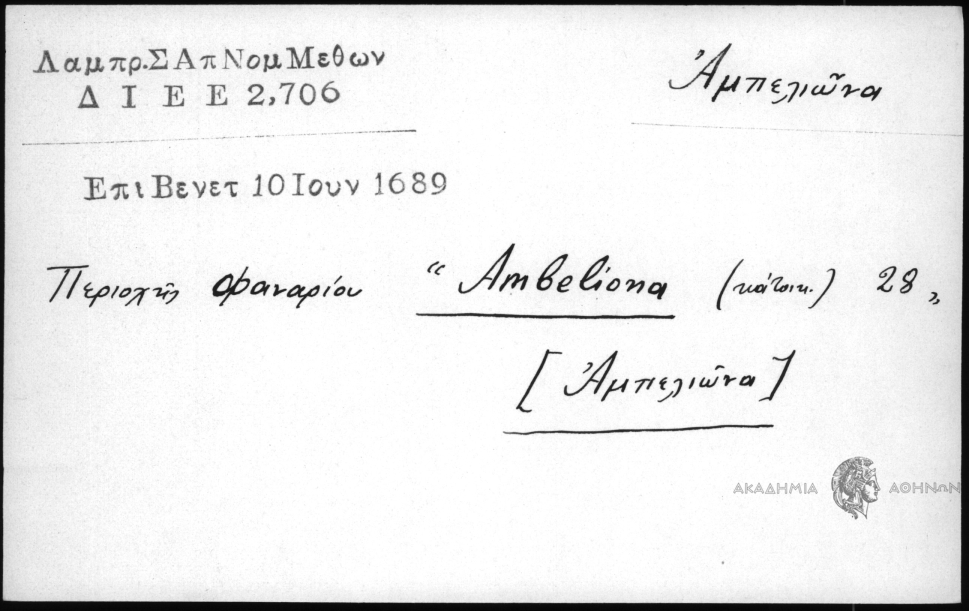 Λαμπρ.ΣΑπΝομΜεθων
Δ Ι Ε Ε 2,706
Ἀμπελιῶνα
ΕπιΒενετ 10Ιουν 1689
Περιοχῆς Φαναρίου “Ambeliona (κάτοικ.) 28„
[Ἀμπελιῶνα]
ΑΚΑΔΗΜΙΑ ΑΘΗΝΩΝ